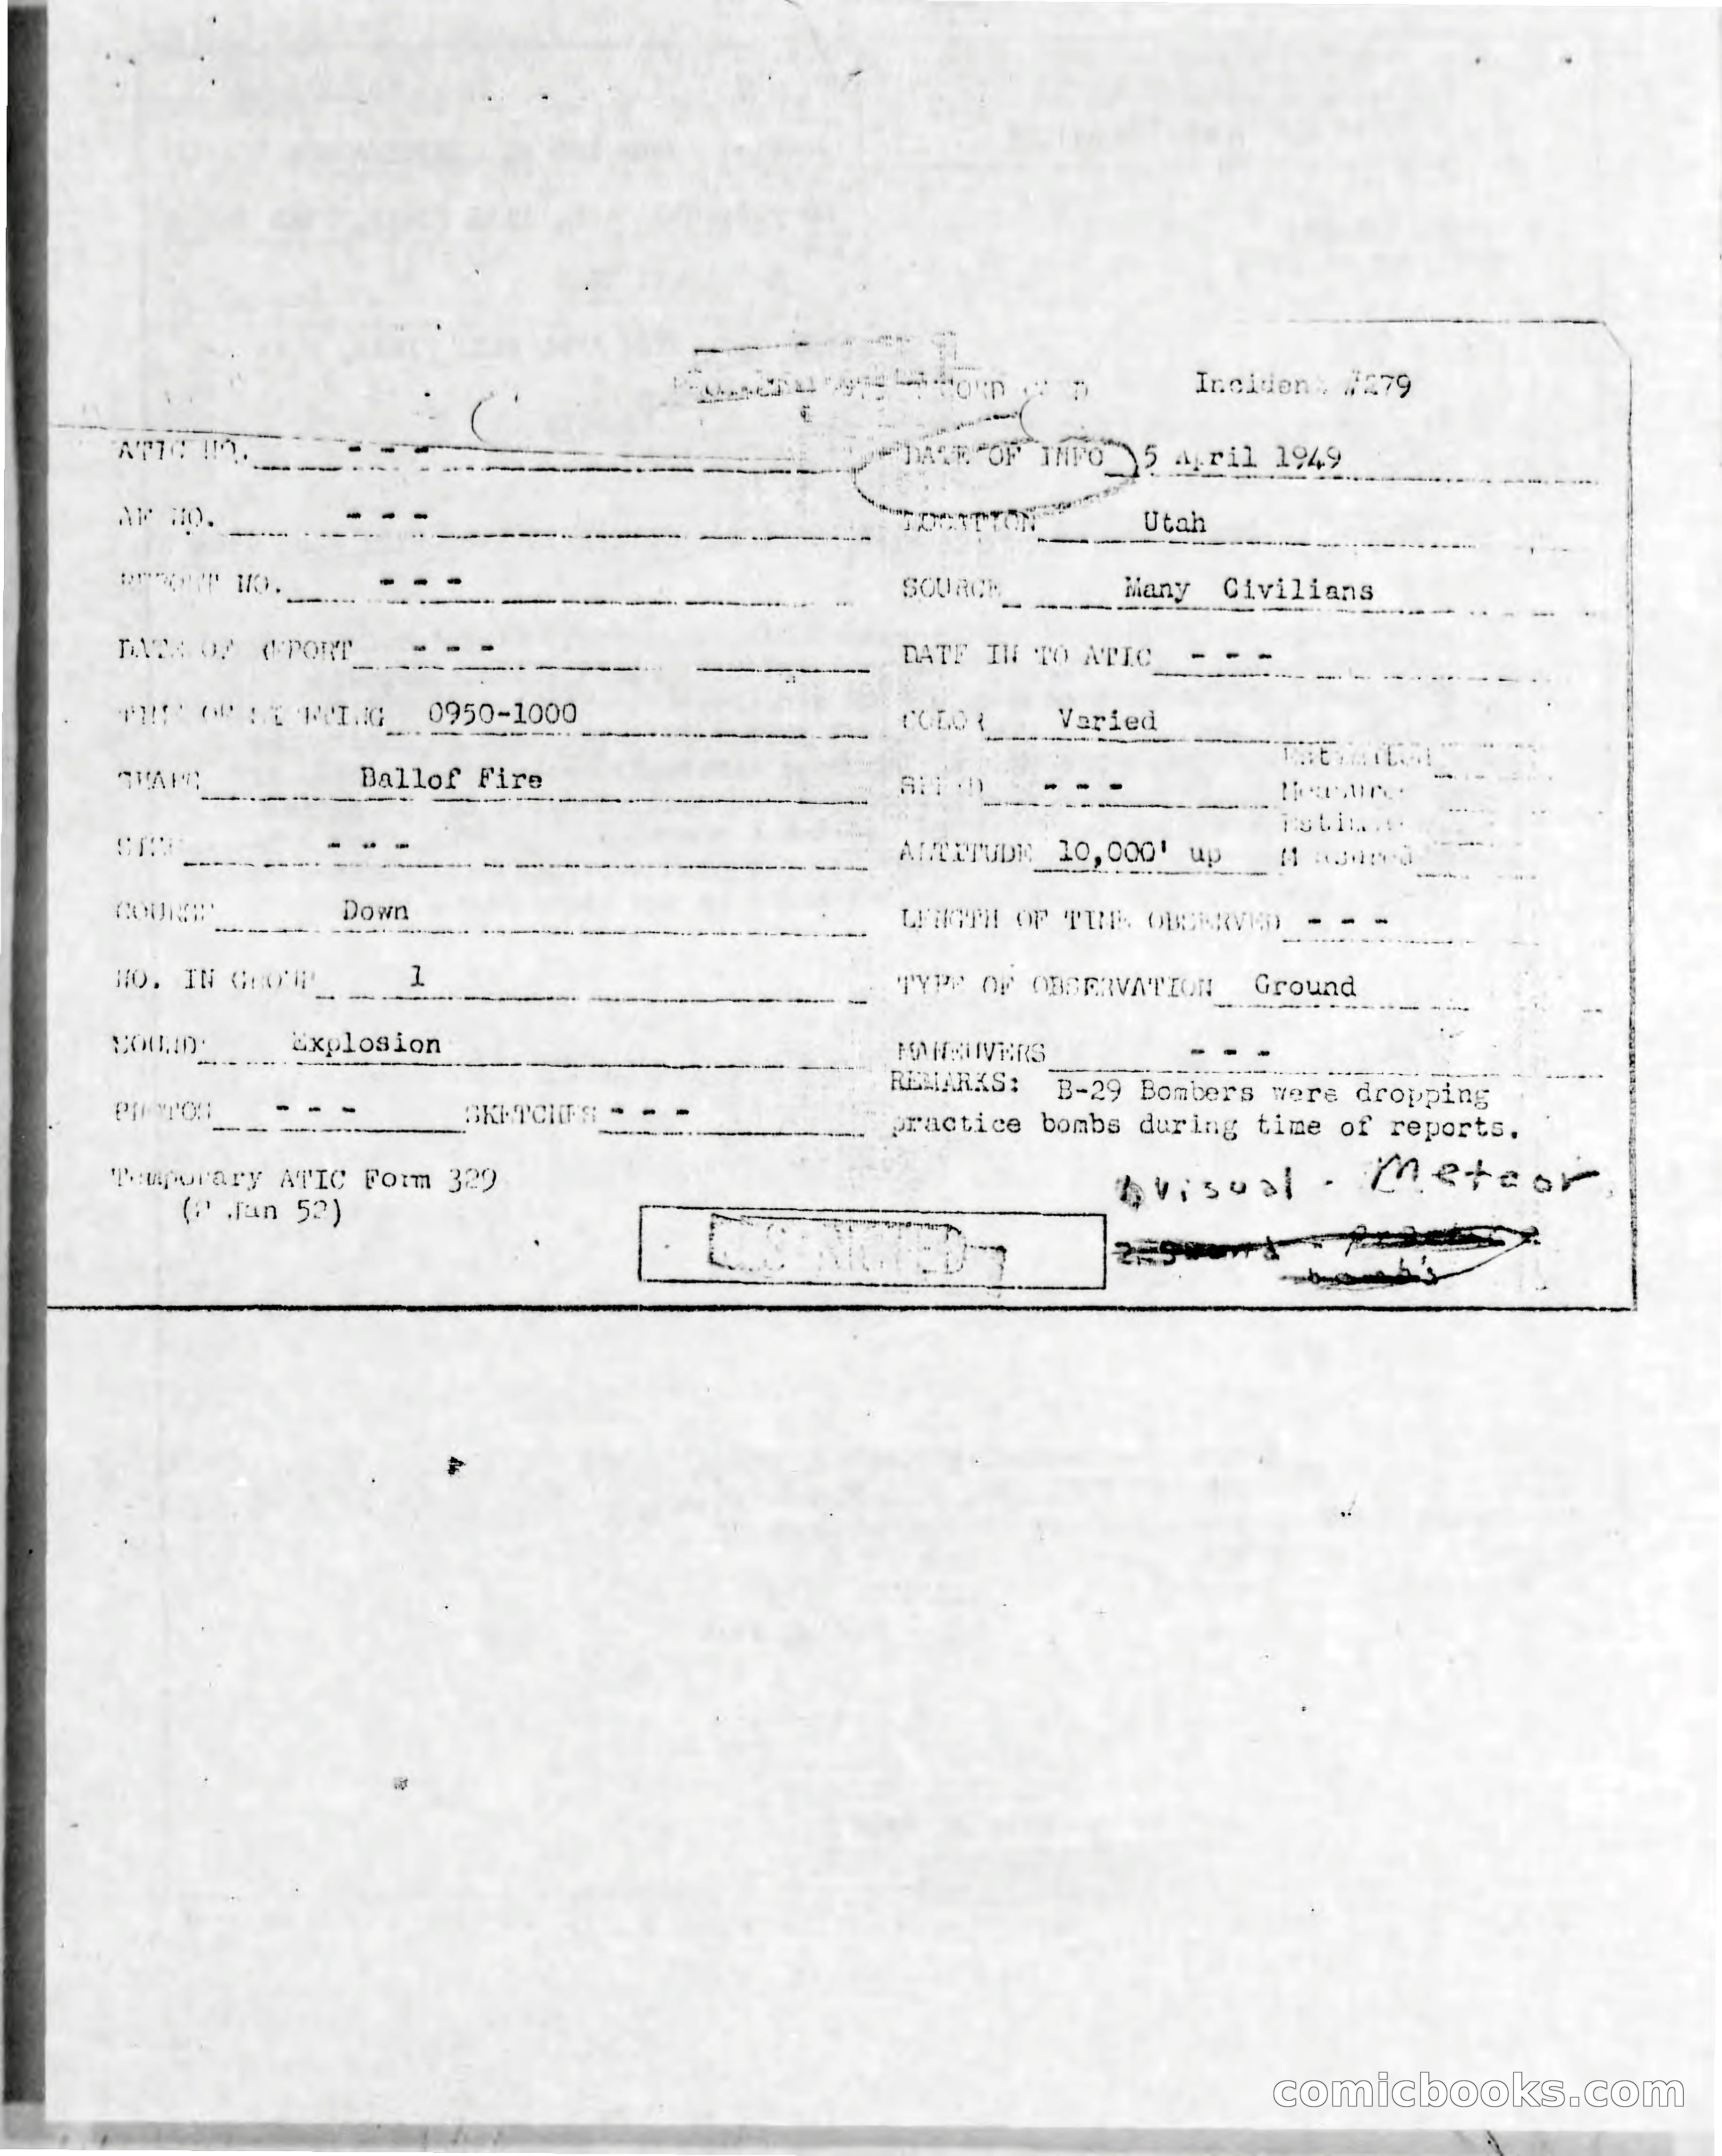 Incident #279
ATIC NO. - - -
DATE OF INFO 5 April 1949
AF NO. - - -
LOCATION Utah
REPORT NO. - - -
SOURCE Many Civilians
DATE OF REPORT - - -
DATE IN TO ATIC - - -
TIME OF SIGHTING 0950-1000
COLOR Varied
SHAPE Ballof Fire
SPEED - - -
SIZE - - -
ALTITUDE 10,000' up
COURSE Down
LENGTH OF TIME OBSERVED - - -
NO. IN GROUP 1
TYPE OF OBSERVATION Ground
SOUND Explosion
MANEUVERS - - -
PHOTOS - - - SKETCHES - - -
REMARKS: B-29 Bombers were dropping
practice bombs during time of reports.
Temporary ATIC Form 329
Jan 52)
Visual - Meteor
comicbooks.com